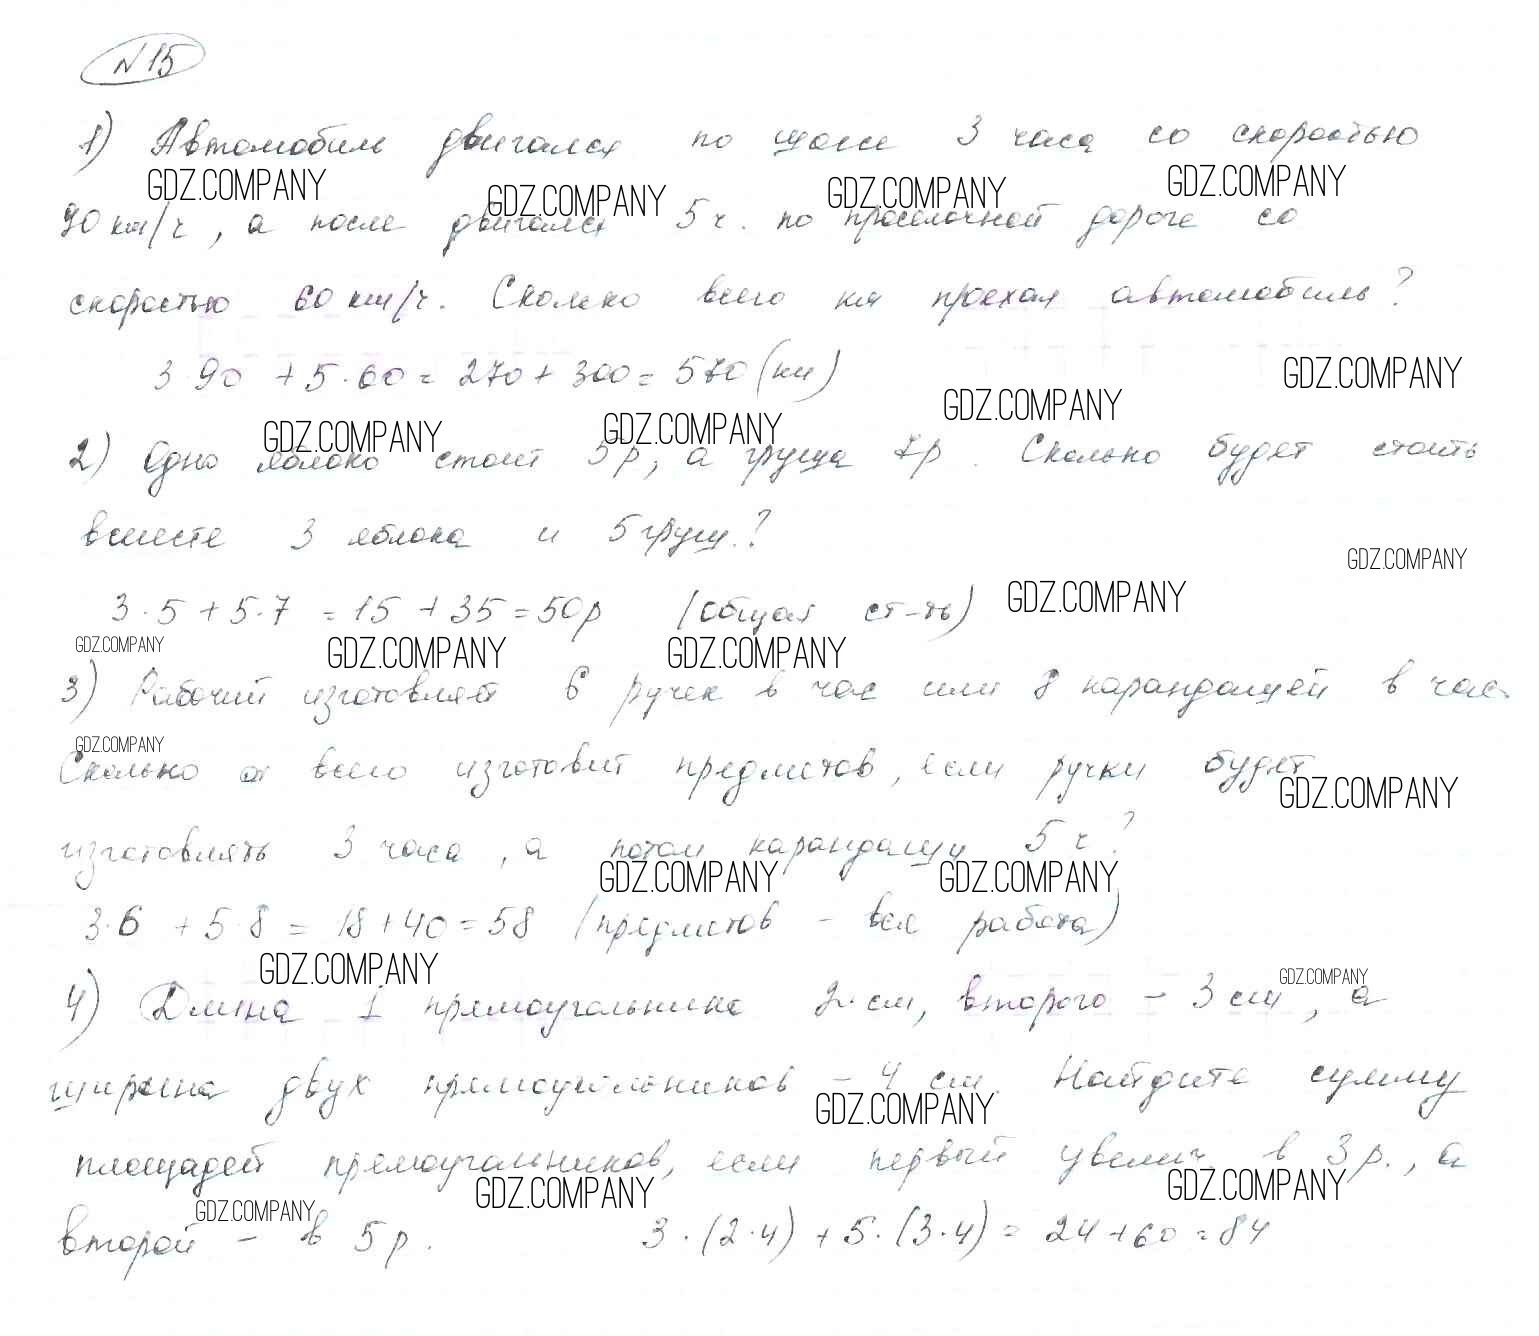 № 15
1) Автомобиль двигался по шоссе 3 часа со скоростью
GDZ.COMPANY GDZ.COMPANY GDZ.COMPANY GDZ.COMPANY
90 км/ч, а после двигался 5 ч. по проселочной дороге со
скоростью 60 км/ч. Сколько всего км проехал автомобиль?
3·90 + 5·60 = 270 + 300 = 570 (км)
GDZ.COMPANY GDZ.COMPANY GDZ.COMPANY GDZ.COMPANY
2) Одно яблоко стоит 5 р, а груша 7 р. Сколько будет стоить
вместе 3 яблока и 5 груш?
GDZ.COMPANY
3·5 + 5·7 = 15 + 35 = 50 р (общая ст-ть)
GDZ.COMPANY
GDZ.COMPANY GDZ.COMPANY GDZ.COMPANY
3) Рабочий изготовляет 6 ручек в час или 8 карандашей в час.
GDZ.COMPANY
Сколько он всего изготовит предметов, если ручки будет
GDZ.COMPANY
изготовлять 3 часа, а потом карандаши 5 ч?
GDZ.COMPANY GDZ.COMPANY
3·6 + 5·8 = 18 + 40 = 58 (предметов - вся работа)
GDZ.COMPANY GDZ.COMPANY
4) Длина 1 прямоугольника 2 см, второго - 3 см, а
ширина двух прямоугольников - 4 см. Найдите сумму
GDZ.COMPANY
площадей прямоугольников, если первый увелич. в 3 р., а
GDZ.COMPANY GDZ.COMPANY GDZ.COMPANY
второй - в 5 р. 3·(2·4) + 5·(3·4) = 24 + 60 = 84